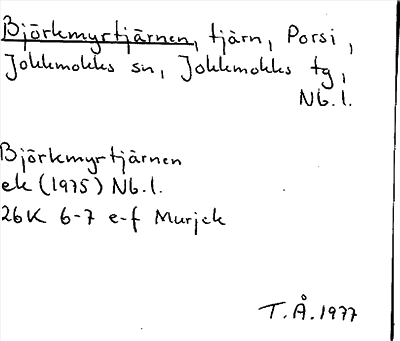 Björkmyrtjärnen, tjärn, Porsi,
Jokkmokks sn, Jokkmokks tg,
Nb.l.
Björkmyrtjärnen
ek (1975) Nb.l.
26K 6-7 e-f Murjek
T.Å.1977